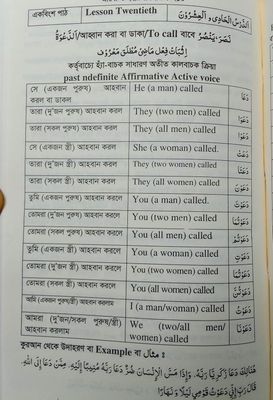 একবিংশ পাঠ Lesson Twentieth اَلدَّرْسُ الْحَادِيْ وَ الْعِشْرُوْنَ
اَلدَّعْوَةُ/আহবান করা বা ডাকা/To call বাবে نَصَرَ-يَنْصُرُ
اِثْبَاتُ فِعْلِ مَاضِيْ مُطْلَقْ مَعْرُوْفْ
কর্তৃবাচ্যে হ্যাঁ-বাচক সাধারণ অতীত কালবাচক ক্রিয়া
past ndefinite Affirmative Active voice
সে (একজন পুরুষ) আহবান করল বা ডাকল He (a man) called دَعَا
তারা (দু'জন পুরুষ) আহবান করল They (two men) called دَعَوَا
তারা (সকল পুরুষ) আহবান করল They (all men) called دَعَوْا
সে (একজন স্ত্রী) আহবান করল She (a woman) called. دَعَتْ
তারা (দু'জন স্ত্রী) আহবান করল They (two women) called دَعَتَا
তারা (সকল স্ত্রী) আহবান করল They (all women) called دَعَوْنَ
তুমি (একজন পুরুষ) আহবান করলে You (a man) called. دَعَوْتَ
তোমরা (দু'জন পুরুষ) আহবান করলে You (two men) called دَعَوْتُمَا
তোমরা (সকল পুরুষ) আহবান করলে You (all men) called. دَعَوْتُمْ
তুমি (একজন স্ত্রী) আহবান করলে You (a woman) called دَعَوْتِ
তোমরা (দু'জন স্ত্রী) আহবান করলে You (two women) called دَعَوْتُمَا
তোমরা (সকল স্ত্রী) আহবান করলে You (all women) called دَعَوْتُنَّ
আমি (একজন পুরুষ/স্ত্রী) আহবান করলাম I (a man/woman) called دَعَوْتُ
আমরা (দু'জন/সকল পুরুষ/স্ত্রী) আহবান করলাম We (two/all men/ women) called دَعَوْنَا
কুরআন থেকে উদাহরণ বা Example বা مثال :
هُنَالِكَ دَعَا زَكَرِيَّا رَبَّهُ. وَإِذَا مَسَّ الْإِنْسَانَ ضُرٌّ دَعَا رَبَّهُ مُنِيبًا إِلَيْهِ. مِمَّنْ دَعَا إِلَى اللَّهِ.
قَالَ رَبِّ إِنِّي دَعَوْتُ قَوْمِي لَيْلًا وَ نَهَارًا